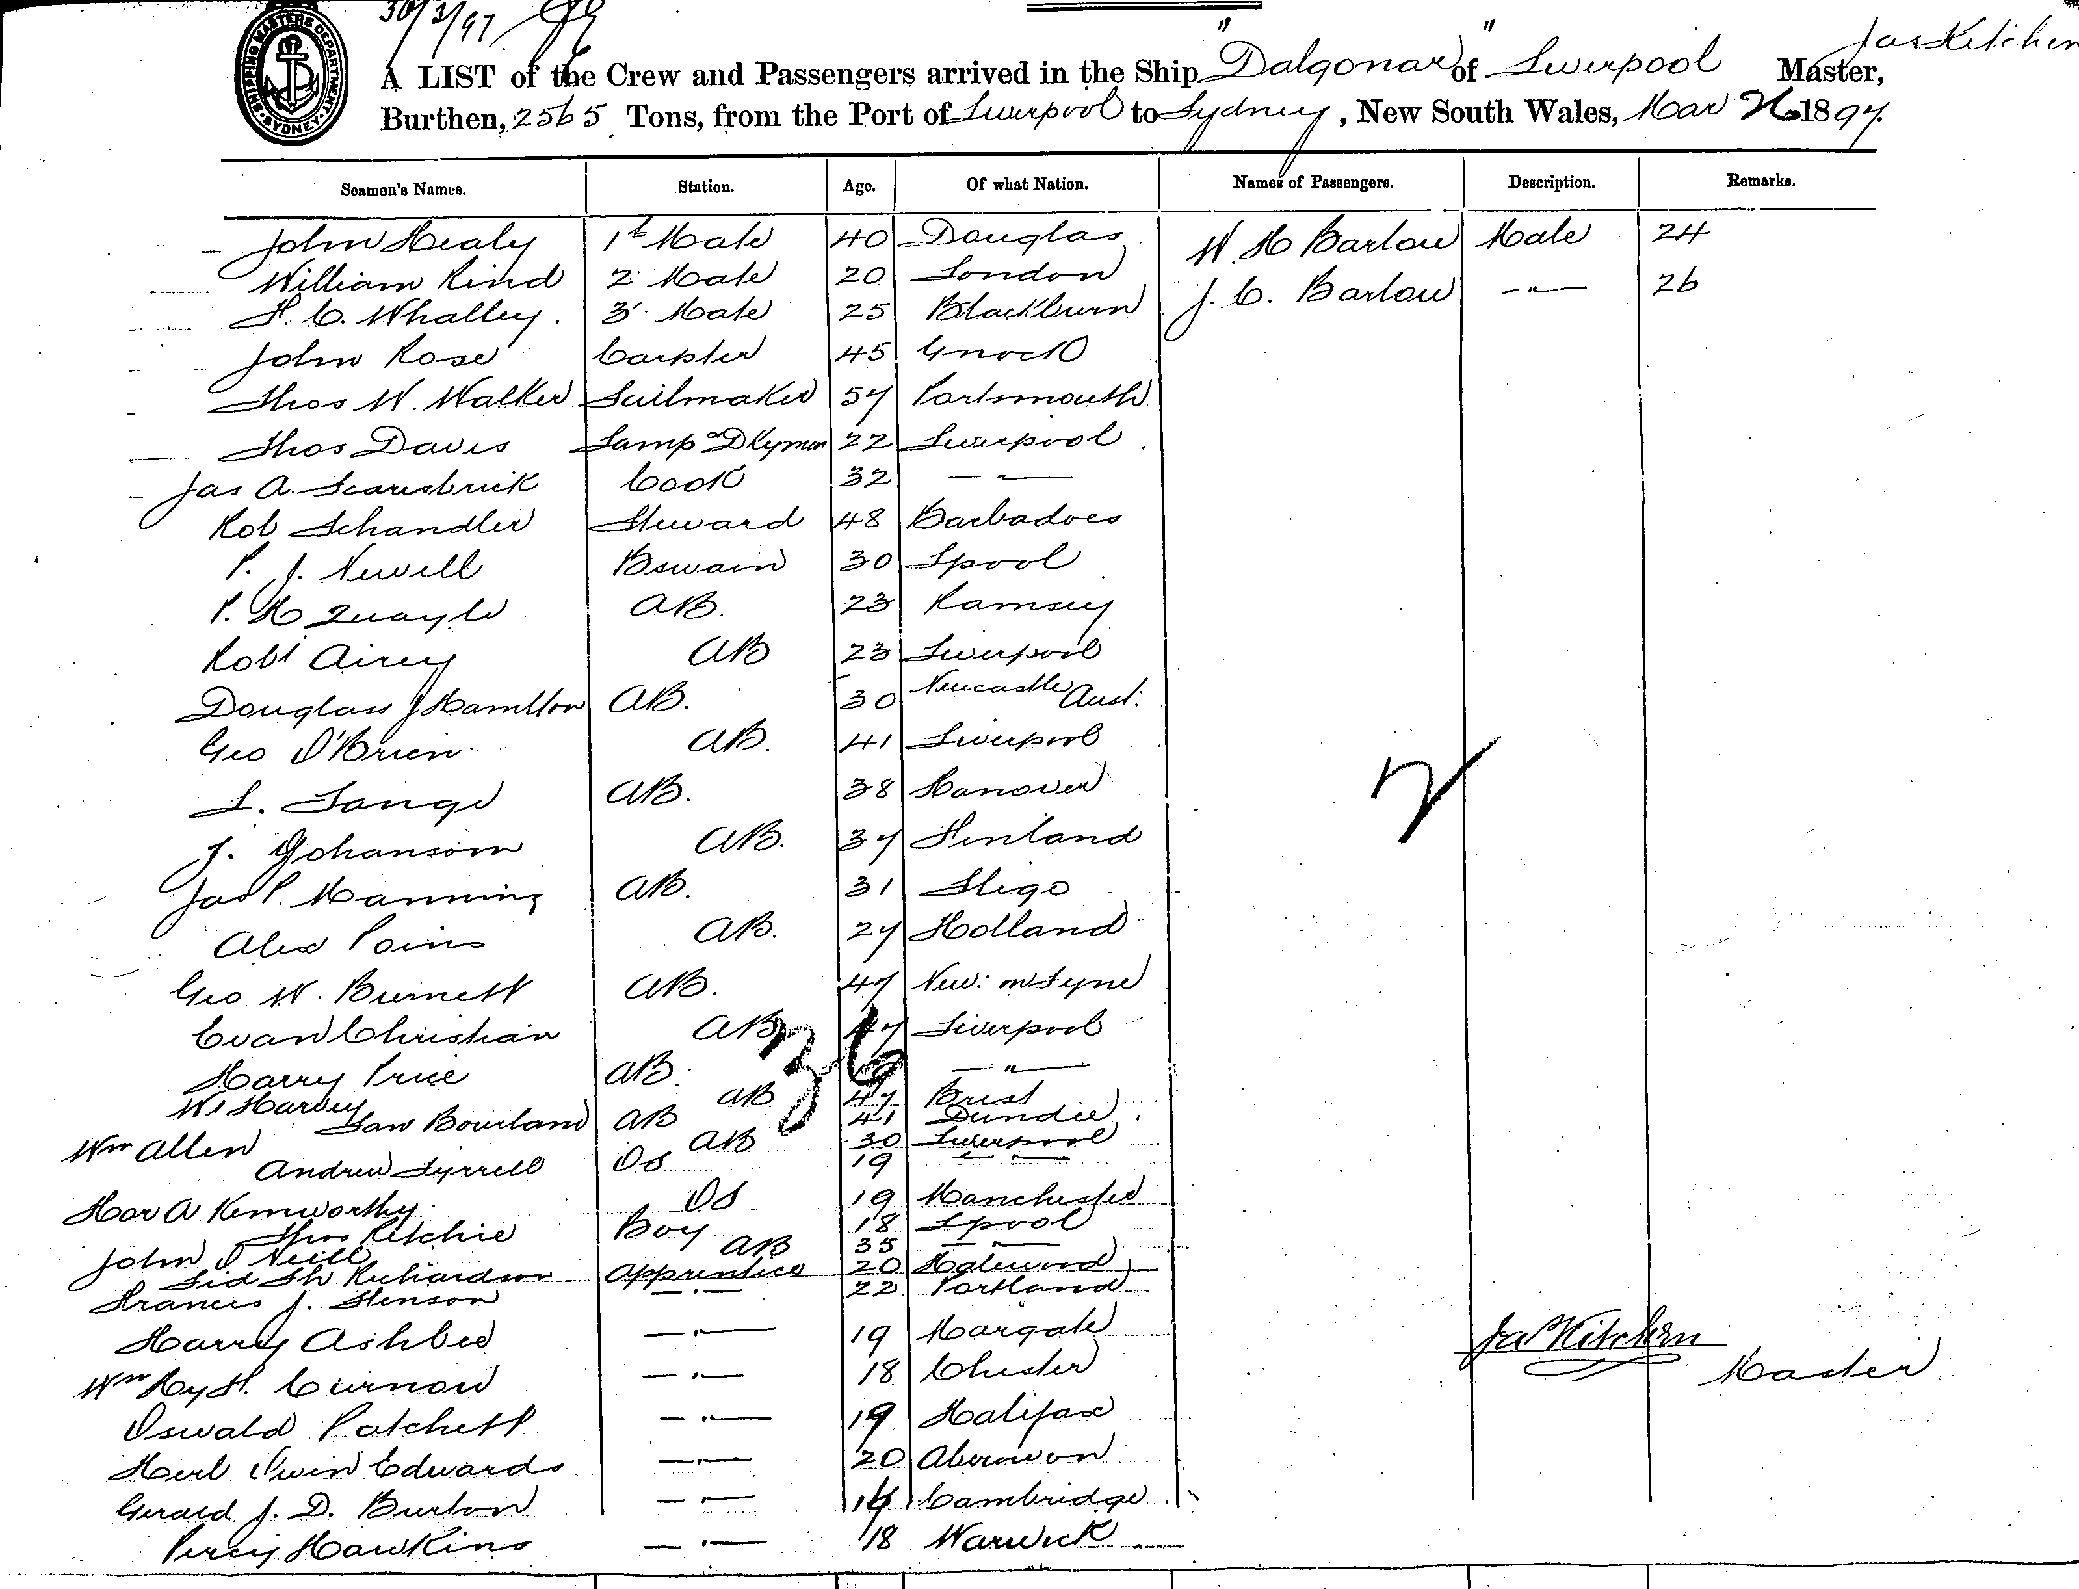 30/3/97
SHIPPING MASTERS DEPARTMENT SYDNEY
Jas Kitchen
A LIST of the Crew and Passengers arrived in the Ship "Dalgonar" of Liverpool Master,
Burthen, 2565 Tons, from the Port of Liverpool to Sydney, New South Wales, Mar 26 1897.
Seamen's Names. Station. Age. Of what Nation. Names of Passengers. Description. Remarks.
John Healy 1st Mate 40 Douglas W. H Barlow Male 24
William Kind 2 Mate 20 London J. C. Barlow —"— 26
H. C. Whalley. 3 Mate 25 Blackburn
John Rose Carpter 45 Gnock
Thos W. Walker Sailmaker 57 Portsmouth
Thos Davis Lamp Dkyman 22 Liverpool
Jas A. Scarisbrick Cook 32 —"—
Rob Schandler Steward 48 Barbadoes
P. J. Newell Bswain 30 Lpool
P. H Quayle AB. 23 Ramsey
Robt Airey AB 23 Liverpool
Douglass J Hamilton AB. 30 Newcastle Aust.
Geo O'Brien AB. 41 Liverpool
L. Lange AB. 38 Hanover
J. Johanson AB. 37 Finland
2
Jas P. Manning AB. 31 Sligo
Alex Poins AB. 27 Holland
Geo W. Burnett AB. 47 New: on Tyne
Evan Christian AB 47 Liverpool
36
Harry Price AB. —"—
W. Harvey AB 47 Brest
Law Bourland AB 41 Dundee
Wm Allen AB 30 Liverpool
Andrew Tyrrell OS 19 —"—
Hor A Kenworthy OS 19 Manchester
Thos Ritchie Boy 18 Lpool
John O'Neill AB 35 —"—
Sid Richardson Apprentice 20 Halewood
Francis J. Stenson —"— 22 Portland
Harry Ashbee —"— 19 Margate
Jas Kitchen
Master
Wm Hy H. Curnow —"— 18 Chester
Oswald Patchett —"— 19 Halifax
Herb Owen Edwards —"— 20 Aberavon
Gerard J. D. Burton —"— Cambridge
Percy Hawkins —"— 18 Warwick